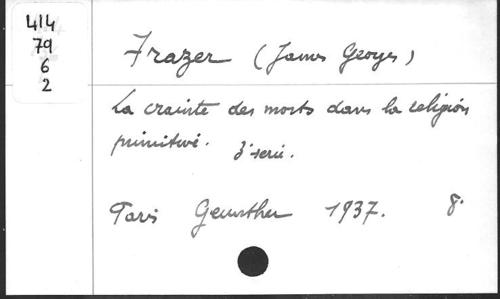 414
79
6
2
Frazer (James Georges)
La crainte des morts dans la religion
primitive. 3e serie.
Paris Geuthner 1937. 8.